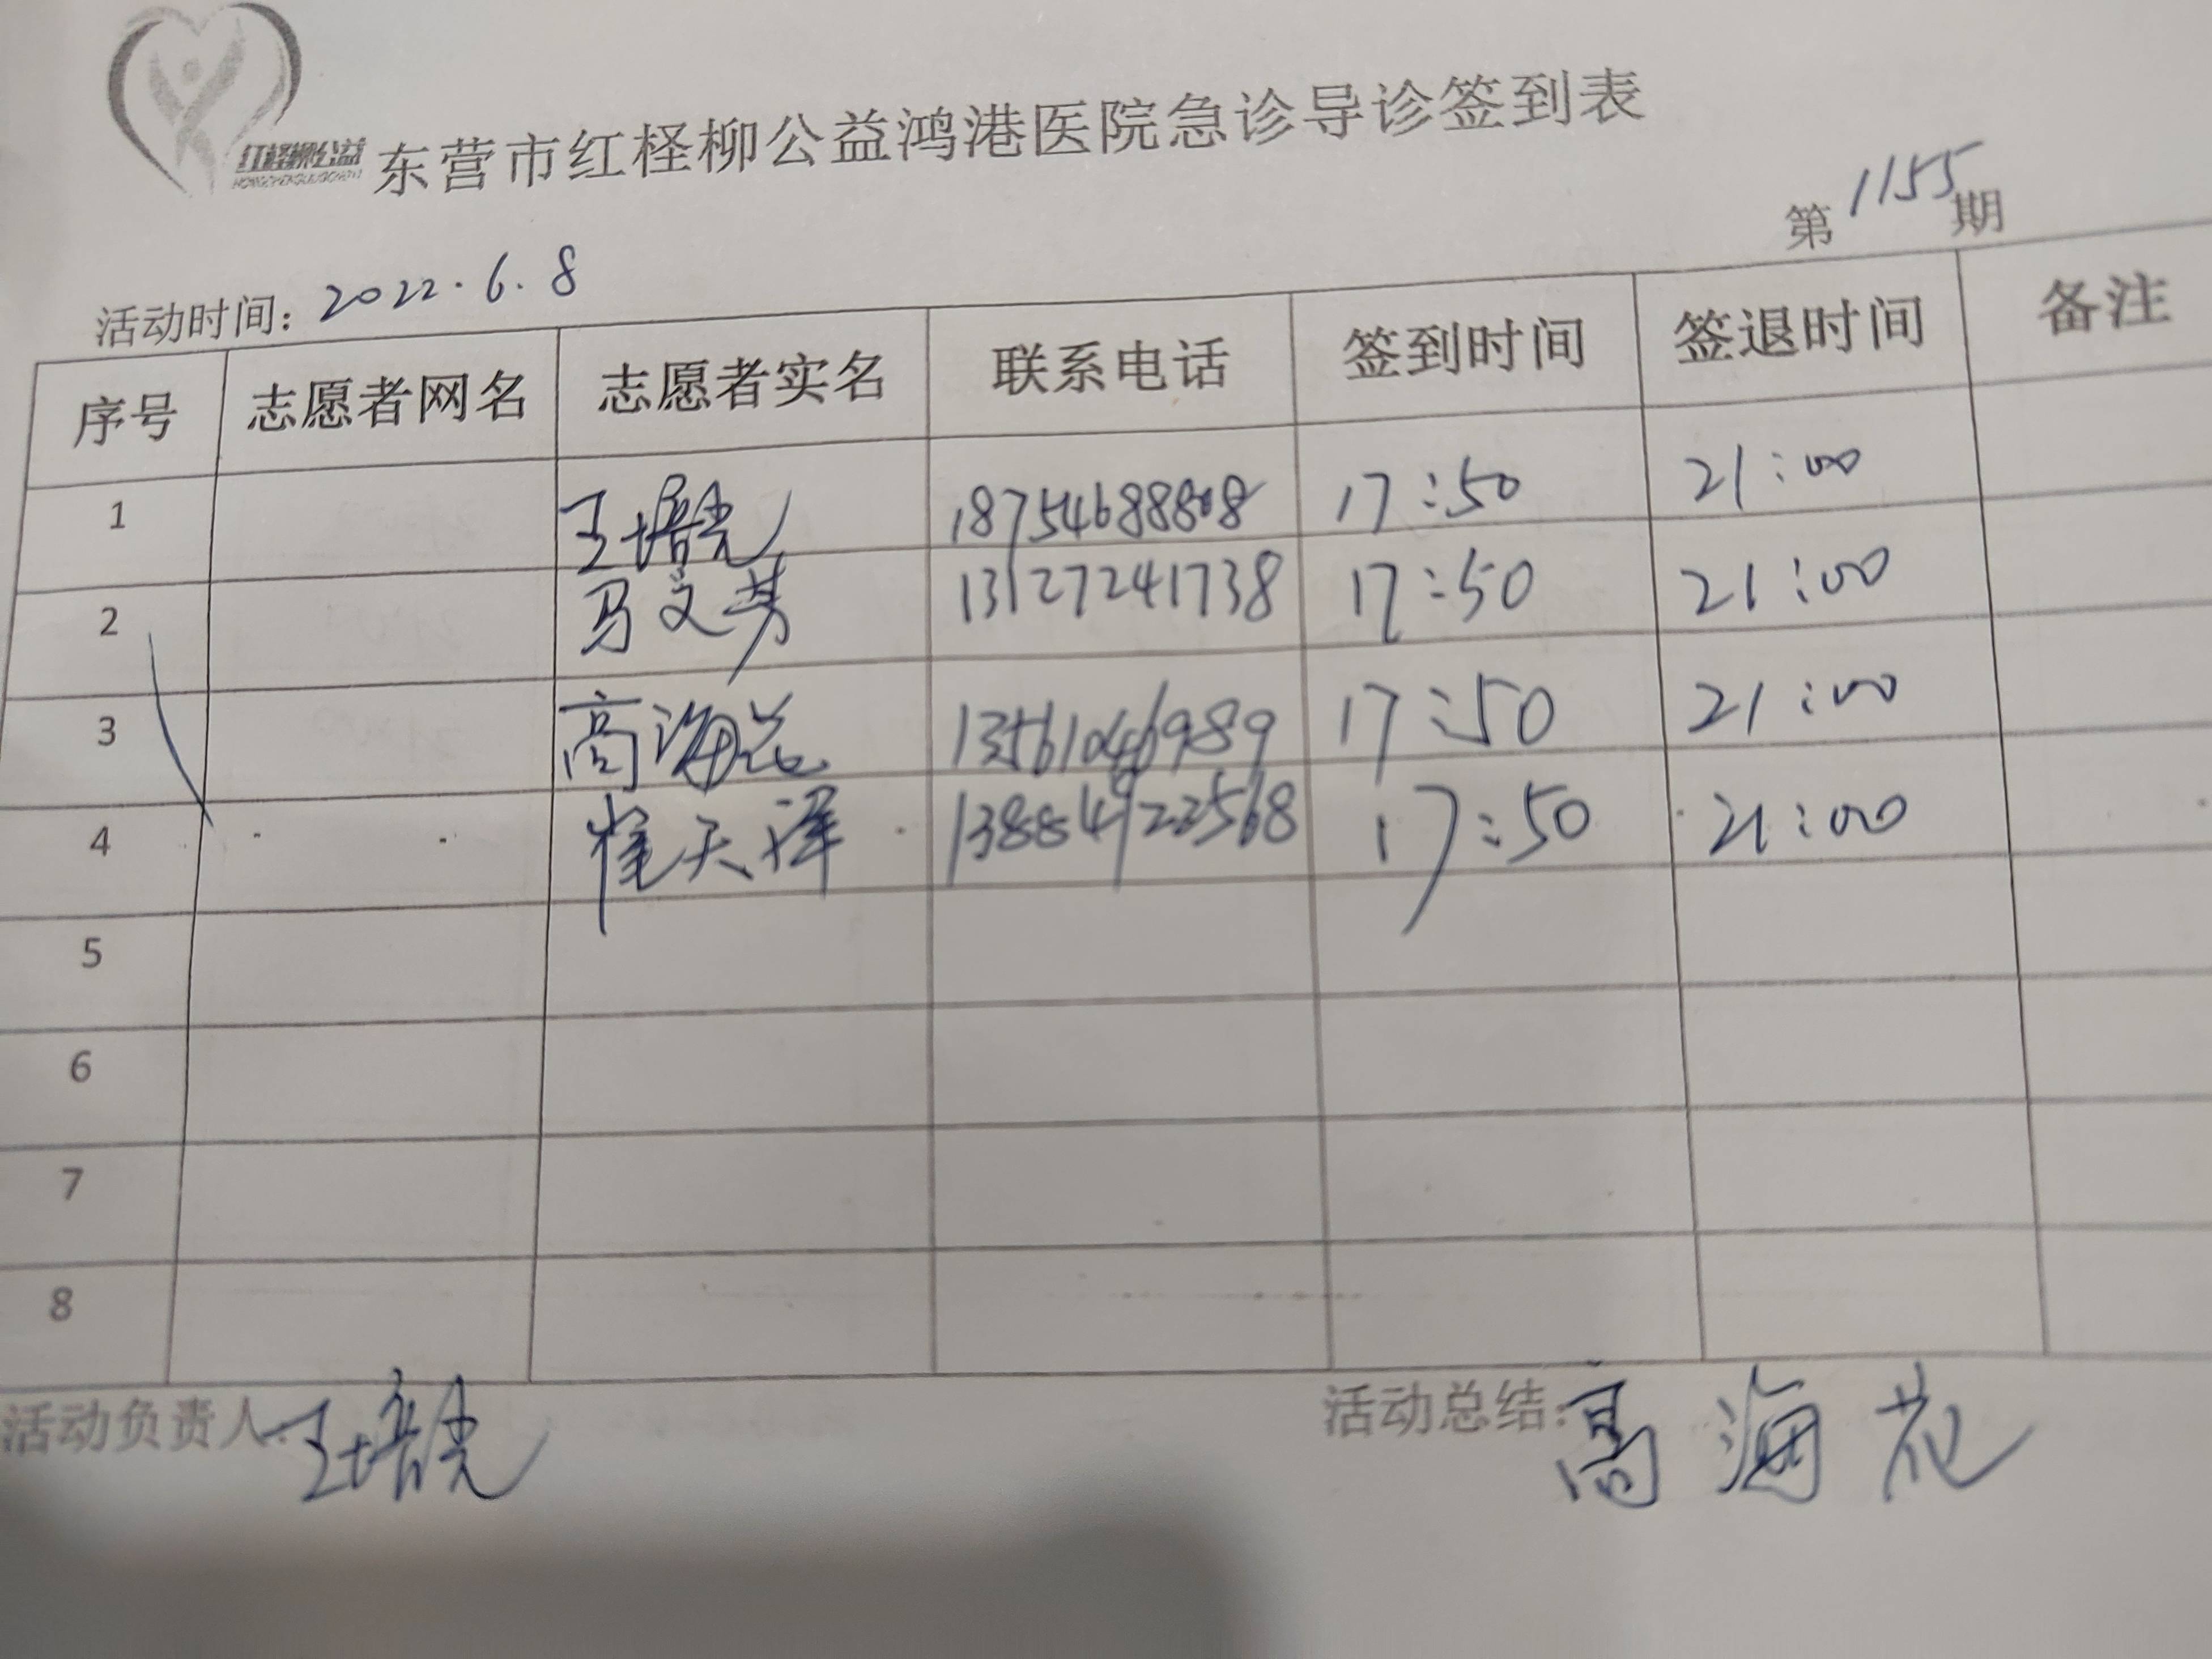 红柽柳公益
东营市红柽柳公益鸿港医院急诊导诊签到表
第1155期
活动时间：2022.6.8
序号 志愿者网名 志愿者实名 联系电话 签到时间 签退时间 备注
1 王培亮 17:50 21:00
2 马文芳 13127241738 17:50 21:00
3 高海花 13561046989 17:50 21:00
4 崔天泽 13884922568 17:50 21:00
5
6
7
8
活动负责人：王培亮
活动总结：高海花